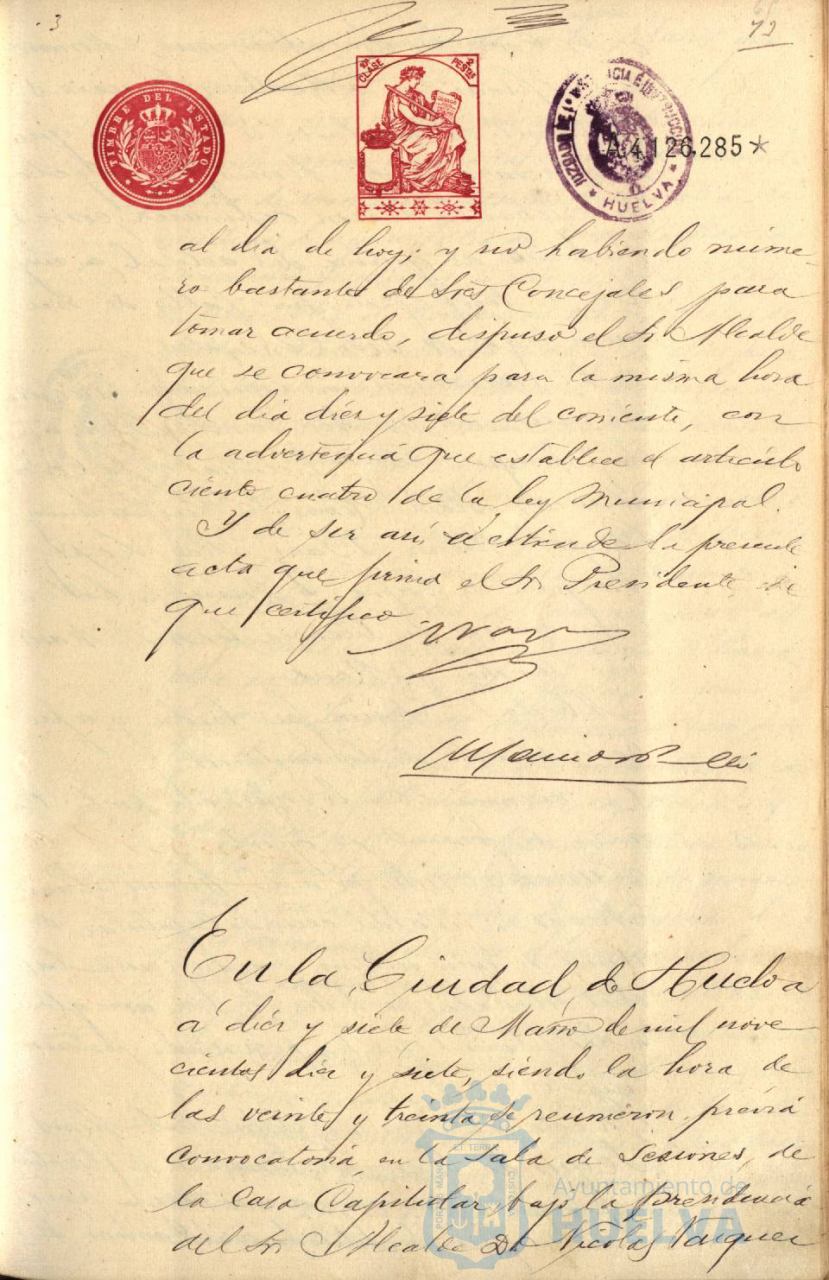 3
72
10ª CLASE
2 PESETAS
TIMBRE DEL ESTADO
JUZGADO DE 1ª INSTANCIA É INSTRUCCION
* HUELVA *
A4,126,285*
al dia de hoy; y no habiendo núme-
ro bastante de Sres Concejales para
tomar acuerdo, dispuso el Sr Alcalde
que se convocara para la misma hora
del dia diez y siete del corriente, con
la advertencia que establece el articulo
ciento cuatro de la ley Municipal.
Y de ser asi se estiende la presente
acta que firma el Sr Presidente de
que certifico
En la Ciudad de Huelva
á diez y siete de Marzo de mil nove-
cientos diez y siete, siendo la hora de
las veinte y treinta se reunieron previa
convocatoria en la Sala de Sesiones, de
la Casa Capitular, bajo la presidencia
del Sr Alcalde Dn Nicolas Vazquez
Ayuntamiento de
HUELVA